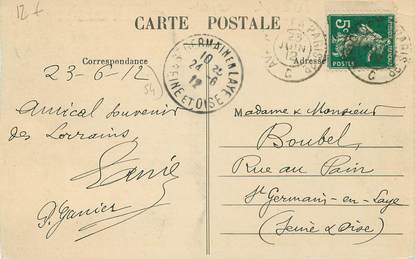 12 €
CARTE POSTALE
Correspondance
Adresse
23-6-12
54
ST GERMAIN EN LAYE
10
24-6
12
SEINE ET OISE
5c
POSTES
PARIS
JUIN
12
Amical Souvenir
des Lorrains
Madame & Monsieur
Boubel
Rue au Pain
St Germain-en-Laye
(Seine & Oise)